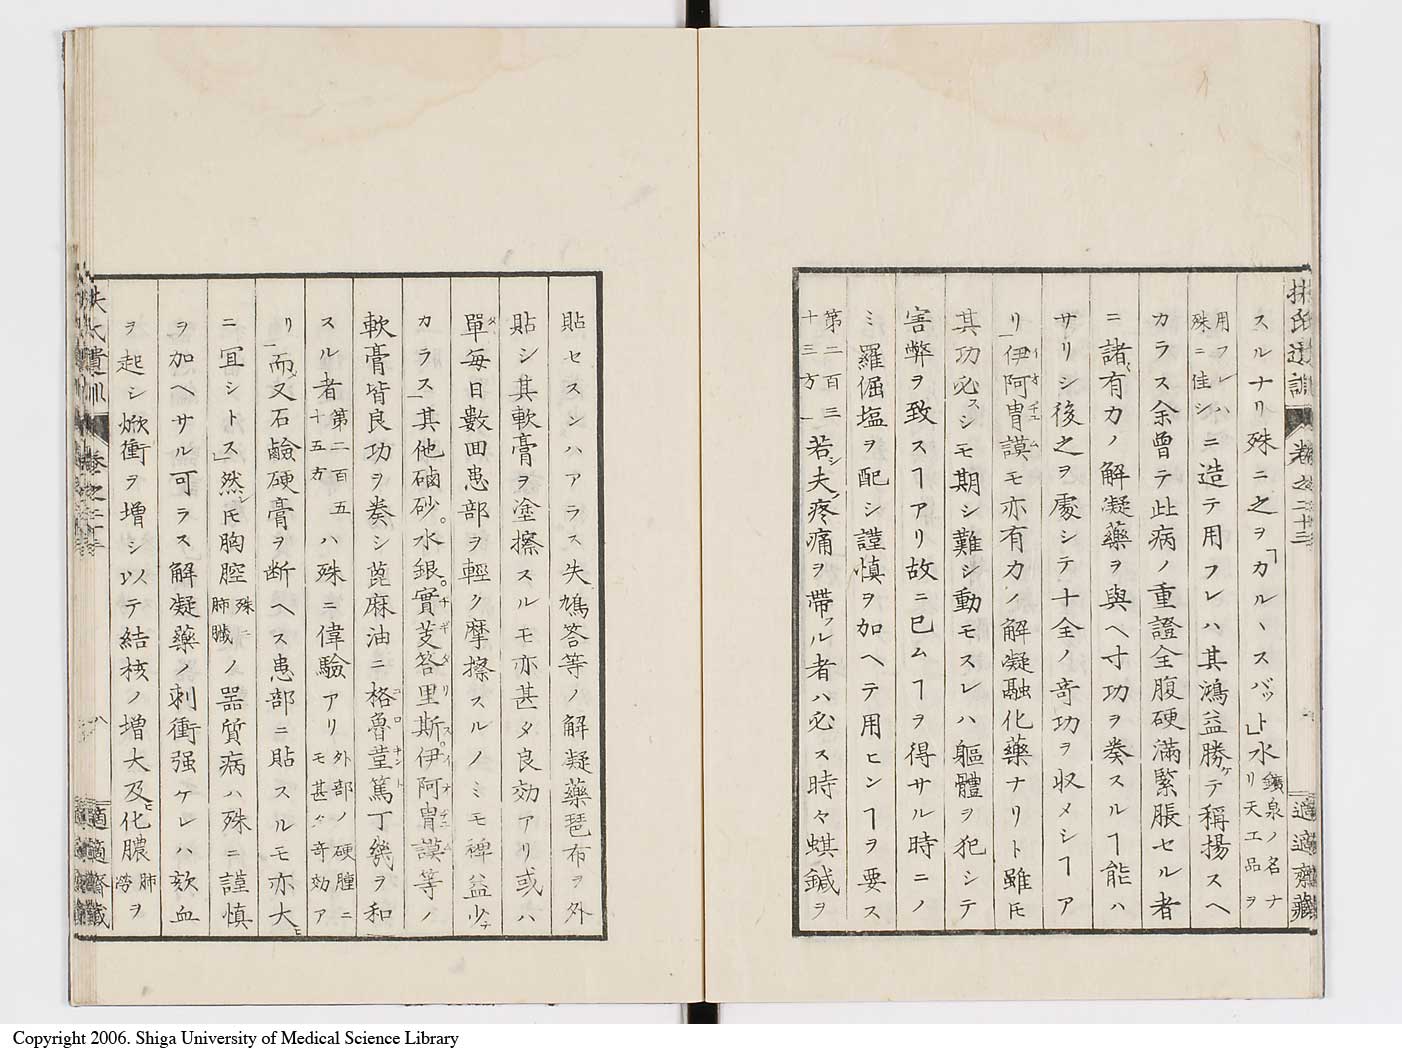 扶氏遺訓 卷之二十三 適適齋藏
スルナリ殊ニ之ヲ「カルヽスバット」水鑛泉ノ名ナリ天工品ヲ
用フレハ殊ニ佳シニ造テ用フレハ其鴻益勝ケテ稱揚スヘ
カラス余曾テ此病ノ重證全腹硬滿緊脹セル者
ニ諸有力ノ解凝藥ヲ與ヘ寸功ヲ奏スルヿ能ハ
サリシ後之ヲ處シテ十全ノ奇功ヲ収メシヿア
リ」伊阿胄謨モ亦有力ノ解凝融化藥ナリト雖𪜈
其功必スシモ期シ難シ動モスレハ軀體ヲ犯シテ
害弊ヲ致スヿアリ故ニ已ムヿヲ得サル時ニノ
ミ羅倔塩ヲ配シ謹慎ヲ加ヘテ用ヒンヿヲ要ス
第二百三十三方」若シ夫レ疼痛ヲ帶フル者ハ必ス時々蜞鍼ヲ
貼セスンハアラス失鳩答等ノ解凝藥琶布ヲ外
貼シ其軟膏ヲ塗擦スルモ亦甚タ良効アリ或ハ
單タ毎日數回患部ヲ輕ク摩擦スルノミモ裨益少ナ
カラス」其他磠砂。水銀。實芰答里斯。伊阿胄謨等ノ
軟膏皆良功ヲ奏シ蓖麻油ニ格魯菫篤丁幾ヲ和
スル者第二百五十五方ハ殊ニ偉驗アリ外部ノ硬腫ニモ甚タ奇効ア
リ」而メ又石鹼硬膏ヲ断ヘス患部ニ貼スルモ亦大ヒ
ニ冝シトス」然レ𪜈胸腔殊ニ肺臓ノ器質病ハ殊ニ謹慎
ヲ加ヘサル可ラス解凝藥ノ刺衝强ケレハ欬血
ヲ起シ焮衝ヲ増シ以テ結核ノ増大及ヒ化膿肺勞ヲ
扶氏遺訓 卷之二十三 八 適適齋藏
Copyright 2006. Shiga University of Medical Science Library